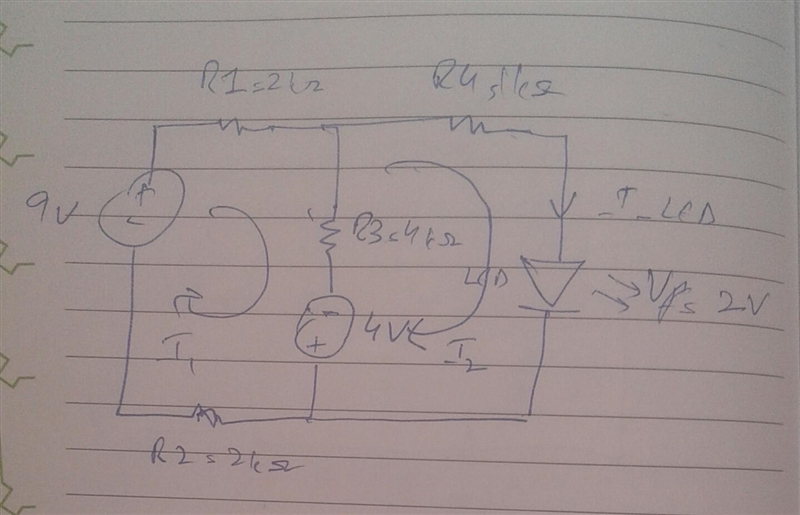 R1=2kΩ
R4=1kΩ
+
-
9V
R3=4kΩ
I_LED
LED
Vf=2V
-
+
4V
I1
I2
R2=2kΩ